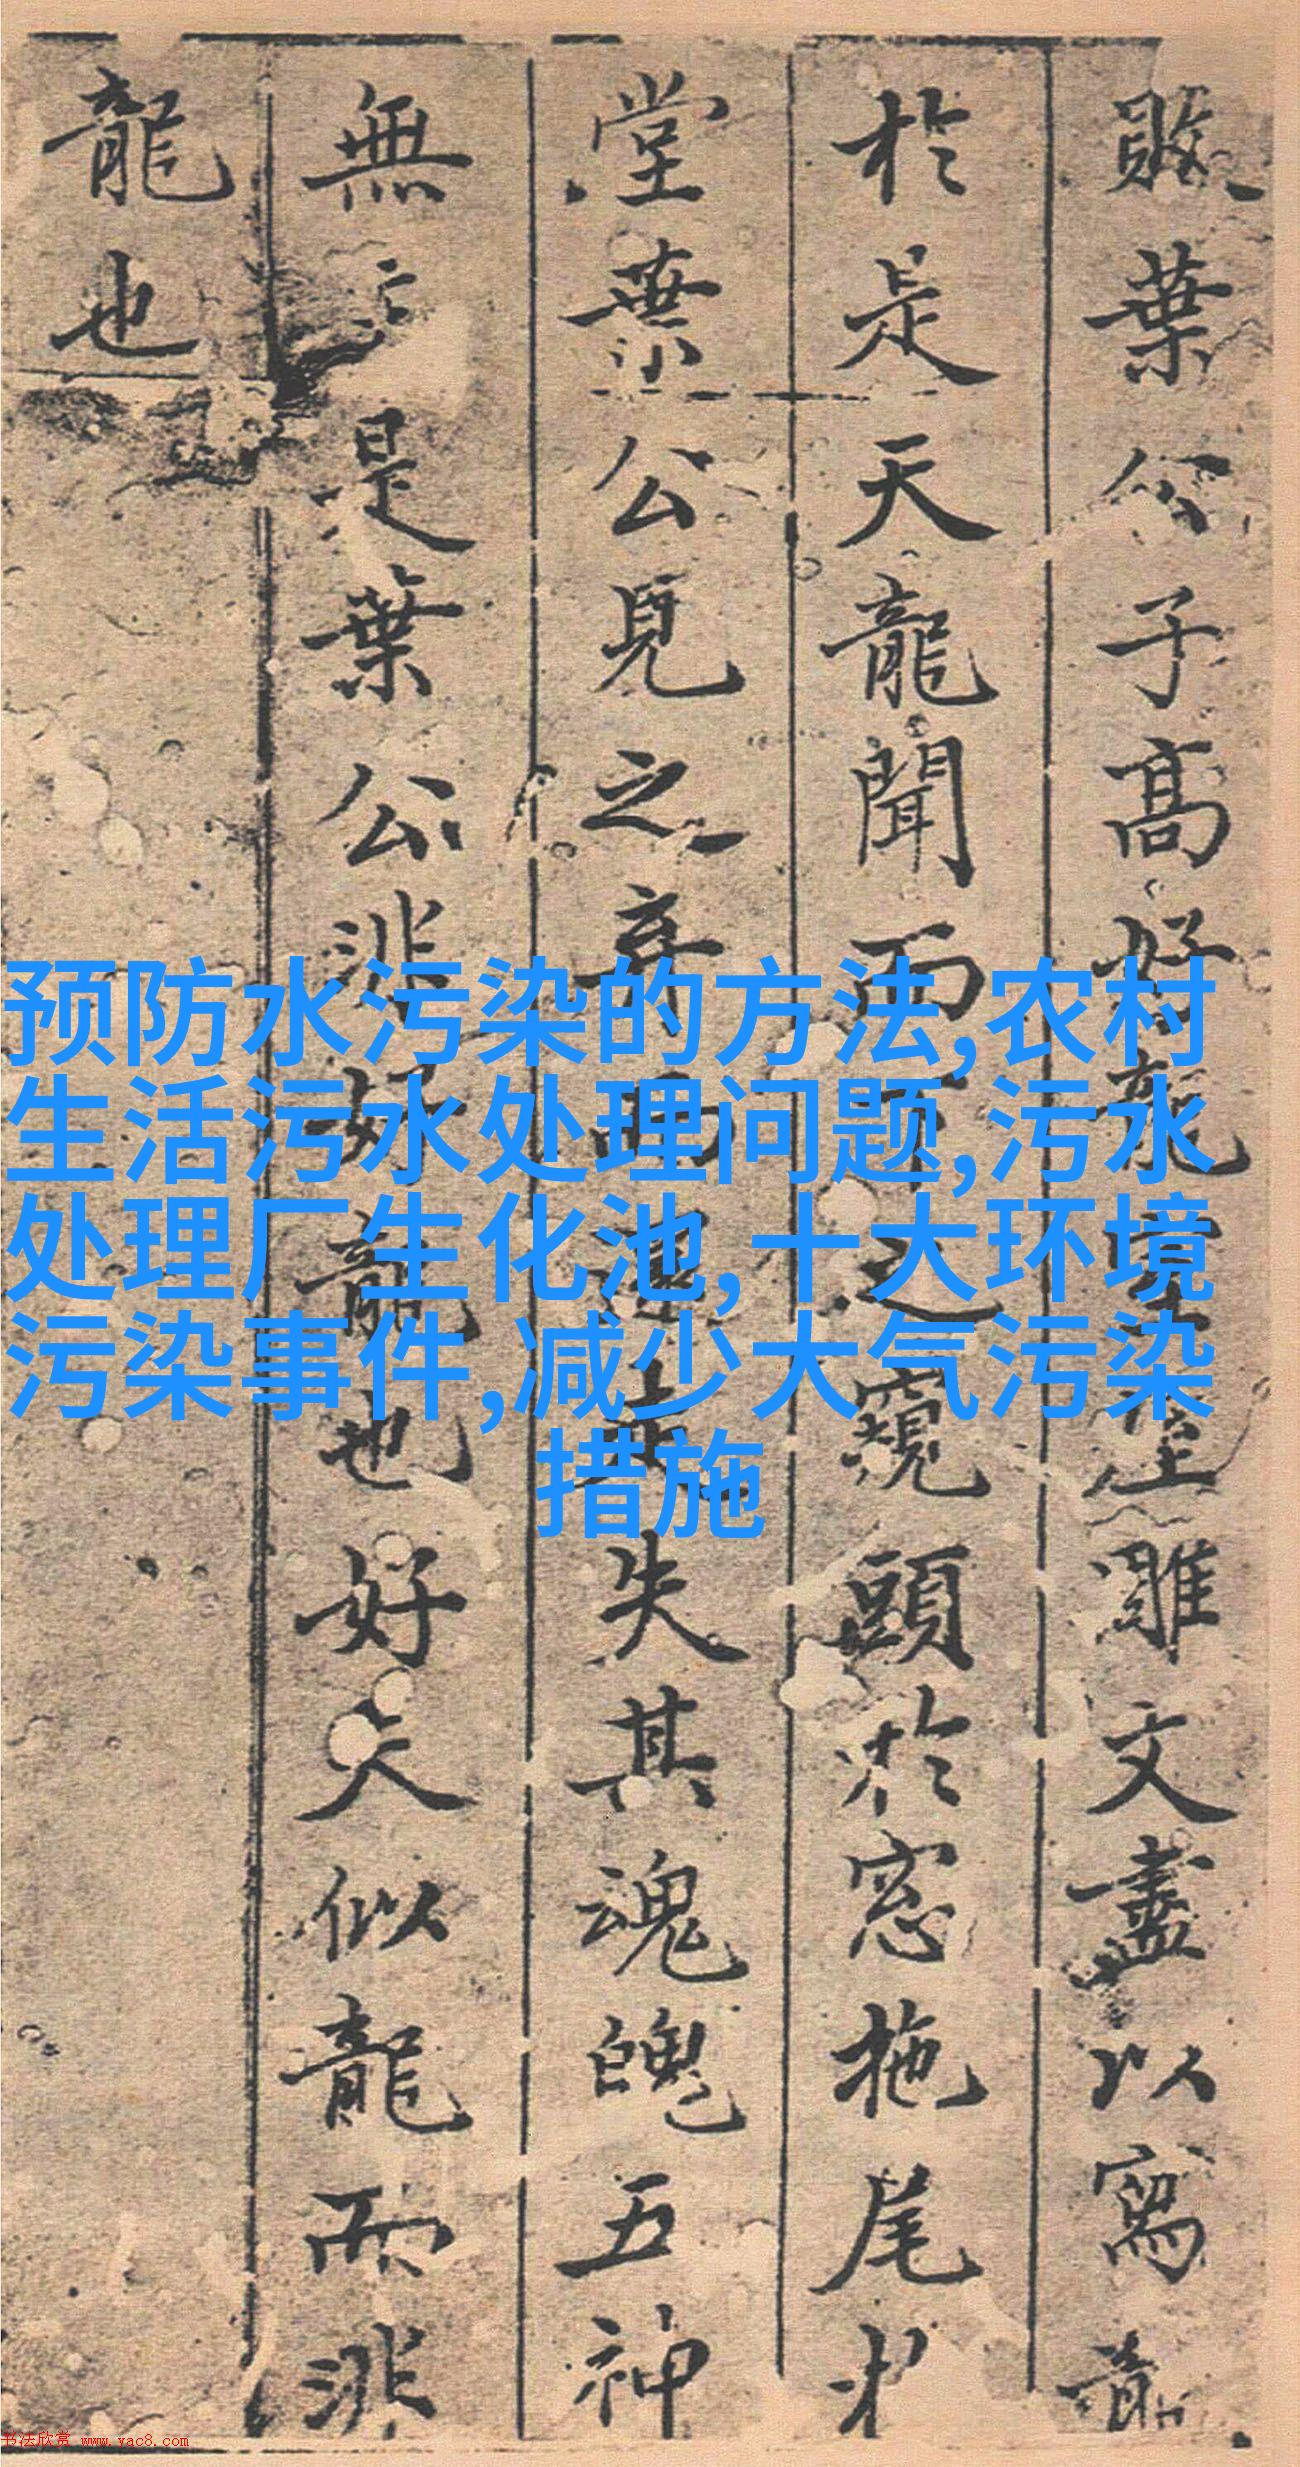 敗葉公子髙好龍雕文盡以寫龍
於是天龍聞而下之窺頭於窓拖尾
堂葉公見之弃而還走失其魂魄五神
無主是葉公非好龍也好夫似龍而非
龍也
预防水污染的方法,农村
生活污水处理问题,污水
处理厂生化池,十大环境
污染事件,减少大气污染
措施
书法欣赏 www.yac8.com